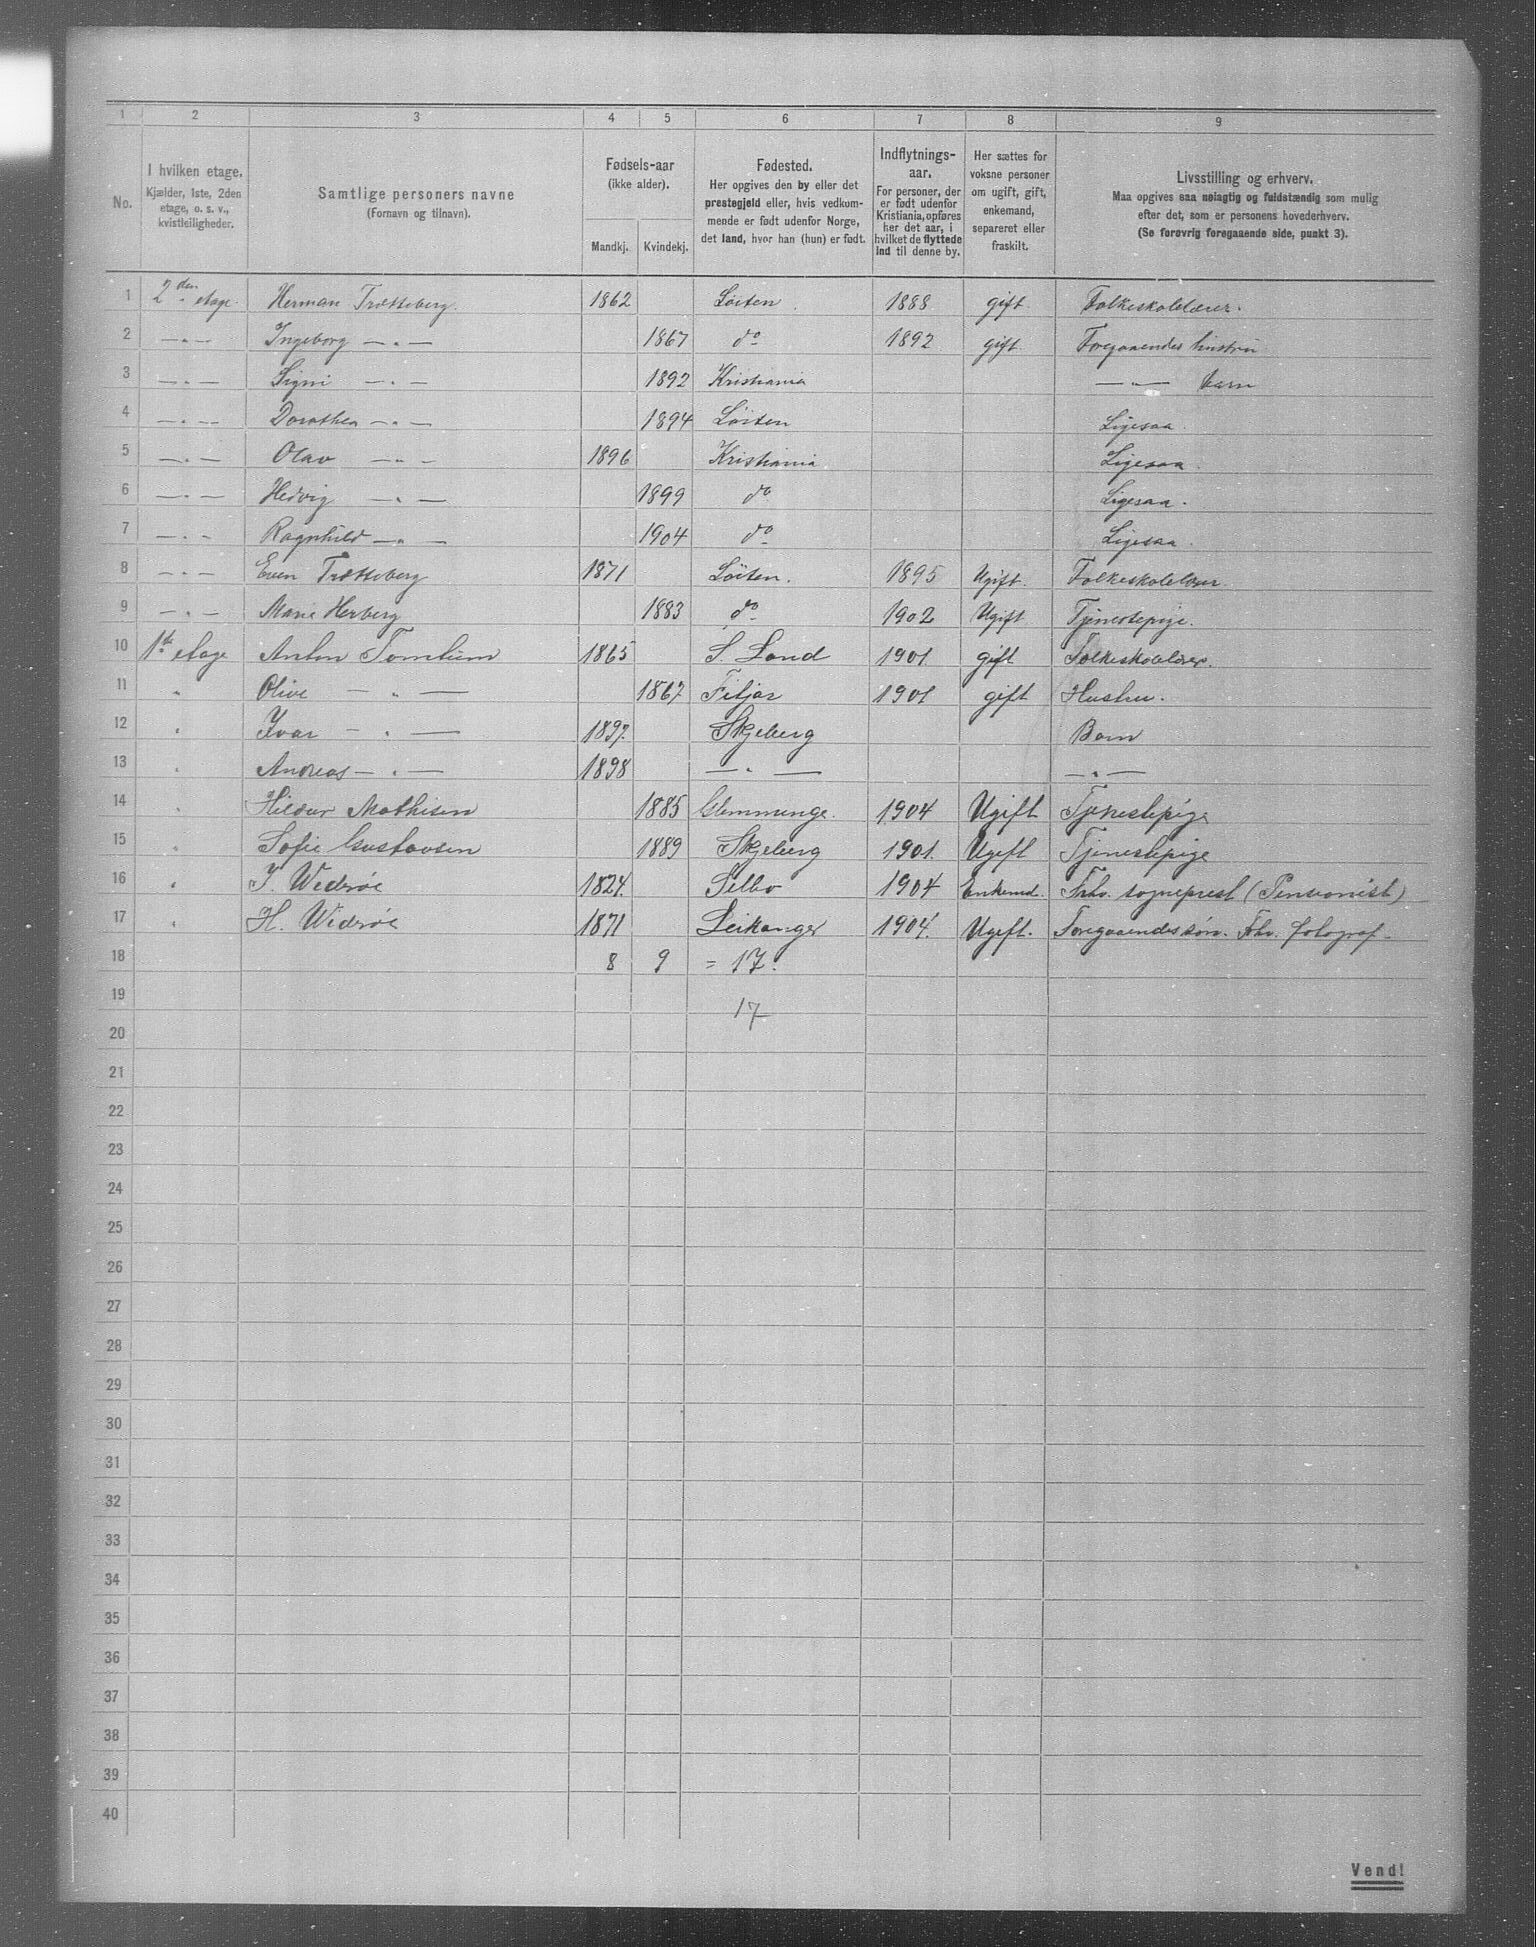 1 2 3 4 5 6 7 8 9
No. I hvilken etage. Kjælder, 1ste, 2den etage, o. s. v., kvistleiligheder. Samtlige personers navne (Fornavn og tilnavn). Fødsels-aar (ikke alder). Mandkj. Kvindekj. Fødested. Her opgives den by eller det prestegjeld eller, hvis vedkommende er født udenfor Norge, det land, hvor han (hun) er født. Indflytnings-aar. For personer, der er født udenfor Kristiania, opføres her det aar, i hvilket de flyttede ind til denne by. Her sættes for voksne personer om ugift, gift, enkemand, separeret eller fraskilt. Livsstilling og erhverv. Maa opgives saa nøiagtig og fuldstændig som mulig efter det, som er personens hovederhverv. (Se forøvrig foregaaende side, punkt 3).
1 2den etage Herman Trætteberg. 1862 Löiten 1888 gift Folkeskolelærer.
2 — „ — Ingeborg — „ — 1867 do 1892 gift Foregaaendes hustru
3 — „ — Signi — „ — 1892 Kristiania — „ — barn
4 — „ — Dorothea — „ — 1894 Löiten Ligesaa
5 — „ — Olav — „ — 1896 Kristiania Ligesaa.
6 — „ — Hedvig — „ — 1899 do Ligesaa.
7 — „ — Ragnhild — „ — 1904 do Ligesaa
8 — „ — Even Trætteberg 1871 Löiten. 1895 Ugift. Folkeskolelærer.
9 — „ — Marie Herberg 1883 do 1902 Ugift Tjenestepige.
10 1ste etage Anton Tomlum 1865 S. Land 1901 gift Folkeskolelærer.
11 „ Olive — „ — 1867 Fitjar 1901 gift Hustru.
12 „ Ivar — „ — 1897. Skjeberg Barn
13 „ Andreas — „ — 1898 — „ — — „ —
14 „ Hildur Mathisen 1885 Glemminge. 1904 Ugift Tjenestepige
15 „ Sofie Gustavsen 1889 Skjeberg 1901. Ugift Tjenestepige
16 „ I. Widerøe 1824. Selbo 1904 Enkemd. Frhv. sogneprest (Pensionist)
17 „ H. Widerøe 1871 Leikanger 1904. Ugift. Foregaaendes søn. Frhv. fotograf.
18 8 9 = 17.
19 17
20
21
22
23
24
25
26
27
28
29
30
31
32
33
34
35
36
37
38
39
40
Vend!